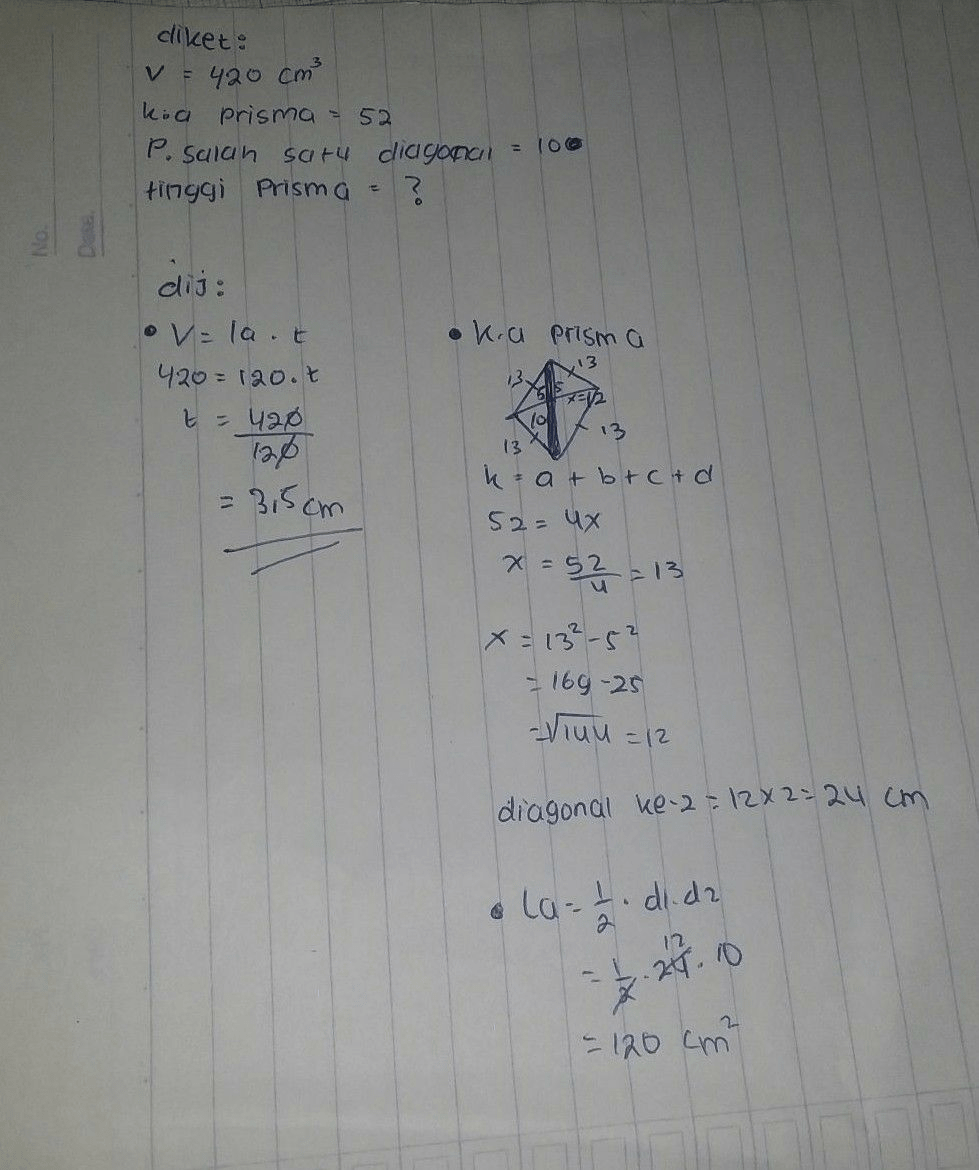 No.
Date.
diket:
V = 420 cm³
k.a prisma = 52
P. salah satu diagonal = 10
tinggi Prisma = ?
dij:
• V = la . t
420 = 120 . t
t = 420
120
= 3,5 cm
• k.a prisma
13 13
5 5 x=12
10
13 13
k = a + b + c + d
52 = 4x
x = 52/4 = 13
x = 13² - 5²
= 169 - 25
= √144 = 12
diagonal ke-2 = 12 x 2 = 24 cm
• La = 1/2 . d1. d2
12
= 1/2 . 24 . 10
= 120 cm²